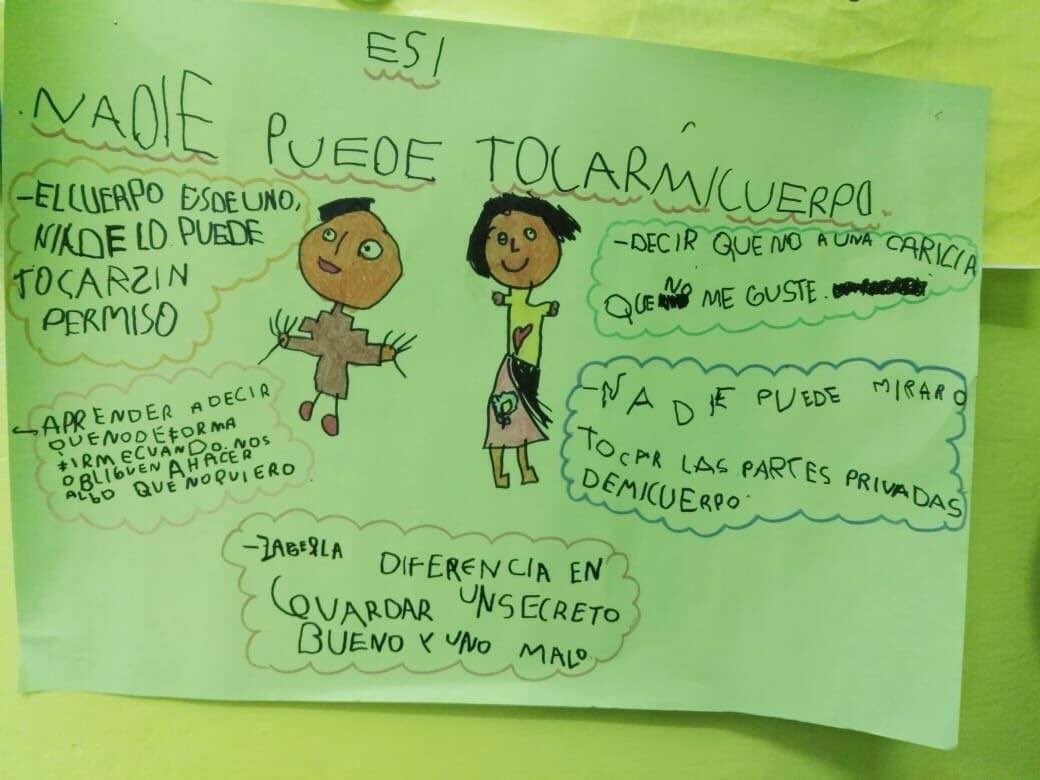 ESI
NADIE PUEDE TOCARMICUERPO.
-ELCUERPO ESDEUNO,
NINDE LO PUEDE
TOCARZIN
PERMISO
-DECIR QUE NO A UNA CARICIA
QUE NO ME GUSTE.
-APRENDER A DECIR
QUENODEFORMA
FIRMECUANDO.NOS
OBLIGUEN AHACER
ALGO QUENOQUIERO
-NADIE PUEDE MIRARO
TOCAR LAS PARTES PRIVADAS
DEMICUERPO
-ZABERLA DIFERENCIA EN
GUARDAR UNSECRETO
BUENO Y UNO MALO.